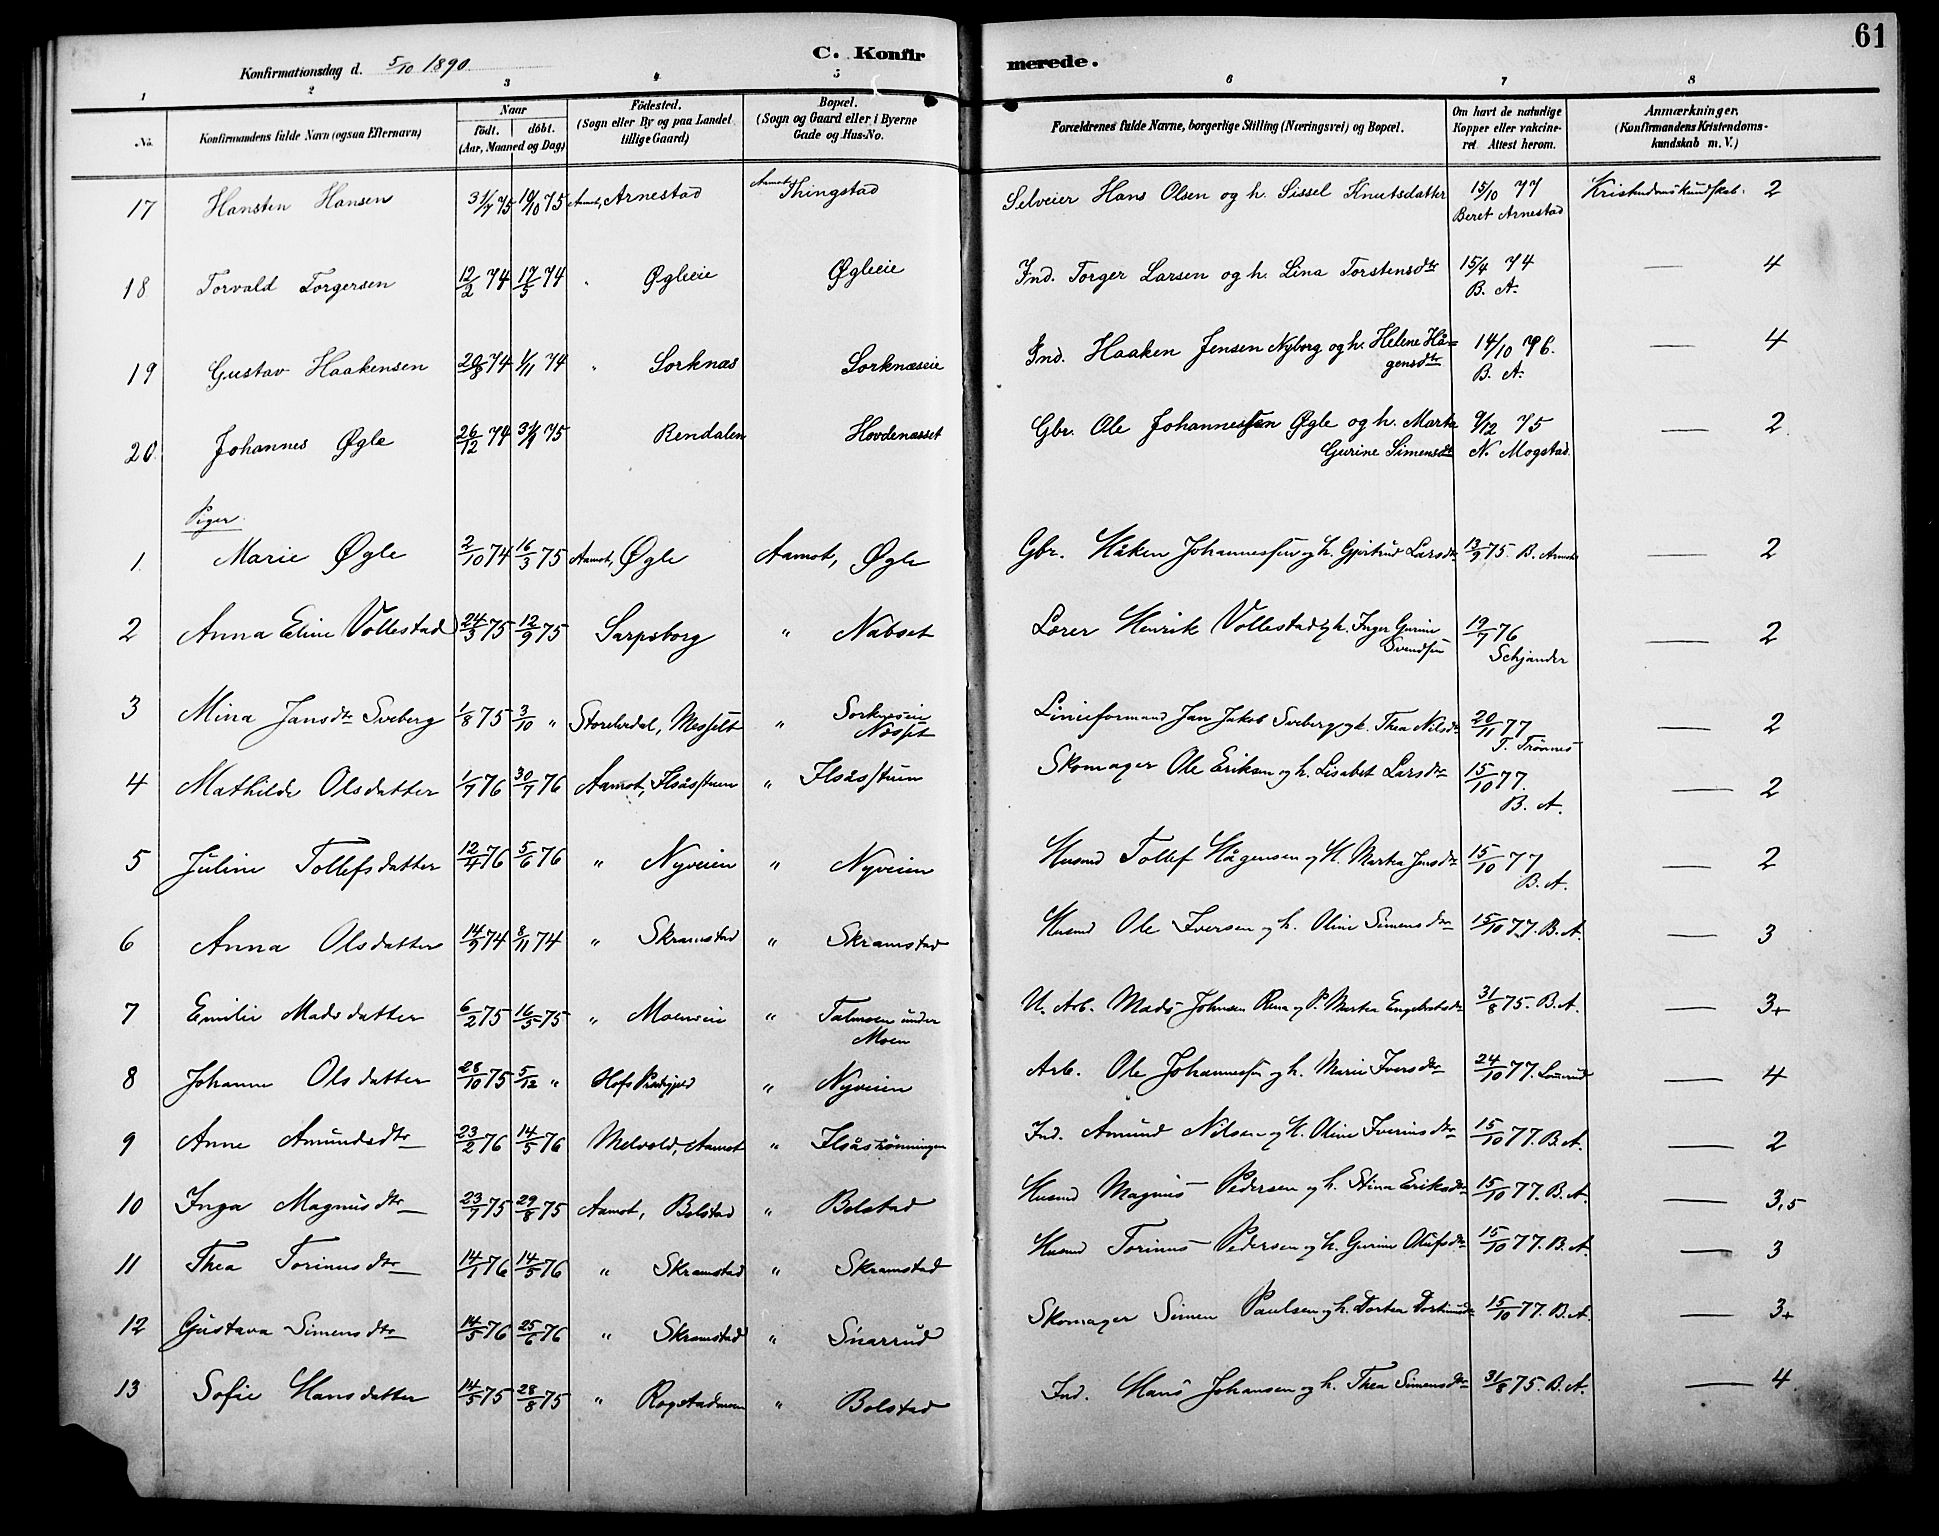 61
Konfirmationsdag d. 5/10 1890. C. Konfirmerede.
1 2 3 4 5 6 7 8
No. Konfirmandens fulde Navn (ogsaa Efternavn) Naar født. døbt. (Aar, Maaned og Dag) Fødested. (Sogn eller By og paa Landet tillige Gaard) Bopæl. (Sogn og Gaard eller i Byerne Gade og Hus-No. Forældrenes fulde Navne, borgerlige Stilling (Næringsvei) og Bopæl. Om havt de naturlige Kopper eller vakcineret. Attest herom. Anmærkninger. (Konfirmandens Kristendomskundskab m. V.)
17 Hansten Hansen 31/7 75 10/10 75 Aamot, Arnestad Aamot Thingstad Selveier Hans Olsen og h. Sissel Knutsdatter 15/10 77 Beret Arnestad Kristendomskundskab. 2
18 Torvald Torgersen 12/2 74 17/5 74 " Øgleeie Øgleeie Ind. Torger Larsen og h. Lina Torstensdtr 15/4 74 B. A. — 4
19 Gustav Haakensen 20/8 74 1/11 74 " Sorknæs Sorknæseie Ind. Haaken Jensen Nyborg og h. Helene Hågensdtr 14/10 76. B. A. — 4
20. Johannes Øgle 26/12 74 31/1 75 Rendalen Hovdenæsset Gbr. Ole Johannessen Øgle og h. Marte Gurine Simensdt 9/12 75 N. Mogstad. — 2
Piger.
1. Marie Øgle 2/10 74 16/3 75 Aamot, Øgle Aamot, Øgle Gbr. Håken Johannessen og h. Gjertrud Larsdtr 13/9 75. B. Arnestad — 2
2 Anna Eline Vollestad 24/3 75 12/9 75 Sarpsborg " Nabset Lærer Henrik Vollestad og h. Inger Gurine Svendsen 19/7 76 Schjander — 2
3 Mina Jansdtr Sveberg 1/8 75 3/10 " Storelvdal, Messelt " Sorknæseie Næsset Linieformand Jan Jakob Sveberg og h. Thea Nilsdtr 20/11 77 T. Trønnes — 2
4 Mathilde Olsdatter 1/7 76 30/7 76 Aamot, Ilsåsstuen " Ilsåsstuen Skomager Ole Eriksen og h. Lisabet Larsdtr 15/10 77. B. A. — 2
5 Juline Tollefsdatter 12/4 76 5/6 76 " Nyveien " Nyveien Husmd Tollef Hågensen og H. Martea Jensdtr 15/10 77 B. A. — 2
6 Anna Olsdatter 14/9 74 8/11 74 " Skramstad " Skramstad Husmd Ole Iversen og h. Oline Simensdtr 15/10 77. B. A. — 3
7 Emilie Madsdatter 6/2 75 16/5 75 " Moenseie " Talmoen under Moen U. Arb. Mads Johnsen Rena og P. Martea Engebretsdtr 31/8 75. B. A. — 3+
8 Johanne Olsdatter 28/10 75 5/12 " Hofs Præstgjeld " Nyveien Arb. Ole Johannessen og h. Marie Iversdtr 24/10 77. — 4
9 Anne Amundsdtr 23/2 76 14/5 76 Melvold, Aamot " Ilsåsrønningen Ind. Amund Nilsen og H. Oline Iverinsdtr 15/10 77. B. A. — 2
10 Inga Magnusdtr 23/7 75 29/8 75 Aamot, Bolstad " Bolstad Husmd Magnus Pedersen og h. Stina Eriksdtr 15/10 77. B. A. — 3,5
11 Thea Torinusdtr 14/1 76 14/5 76 " Skramstad " Skramstad Husmd Torinus Pedersen og h. Gurine Olufsdtr 15/10 77. B. A. — 3
12 Gustava Simensdtr 14/5 76 25/6 76 " Skramstad " Snarrud Skomager Simen Paulsen og h. Dortea Dortinusdtr 15/10 77. B. A. — 3+
13 Sofie Hansdatter 14/5 75 28/8 75 " Rogstadmoen " Bolstad Ind. Hans Johansen og h. Thea Simensdtr 31/8 75. B. A. — 4